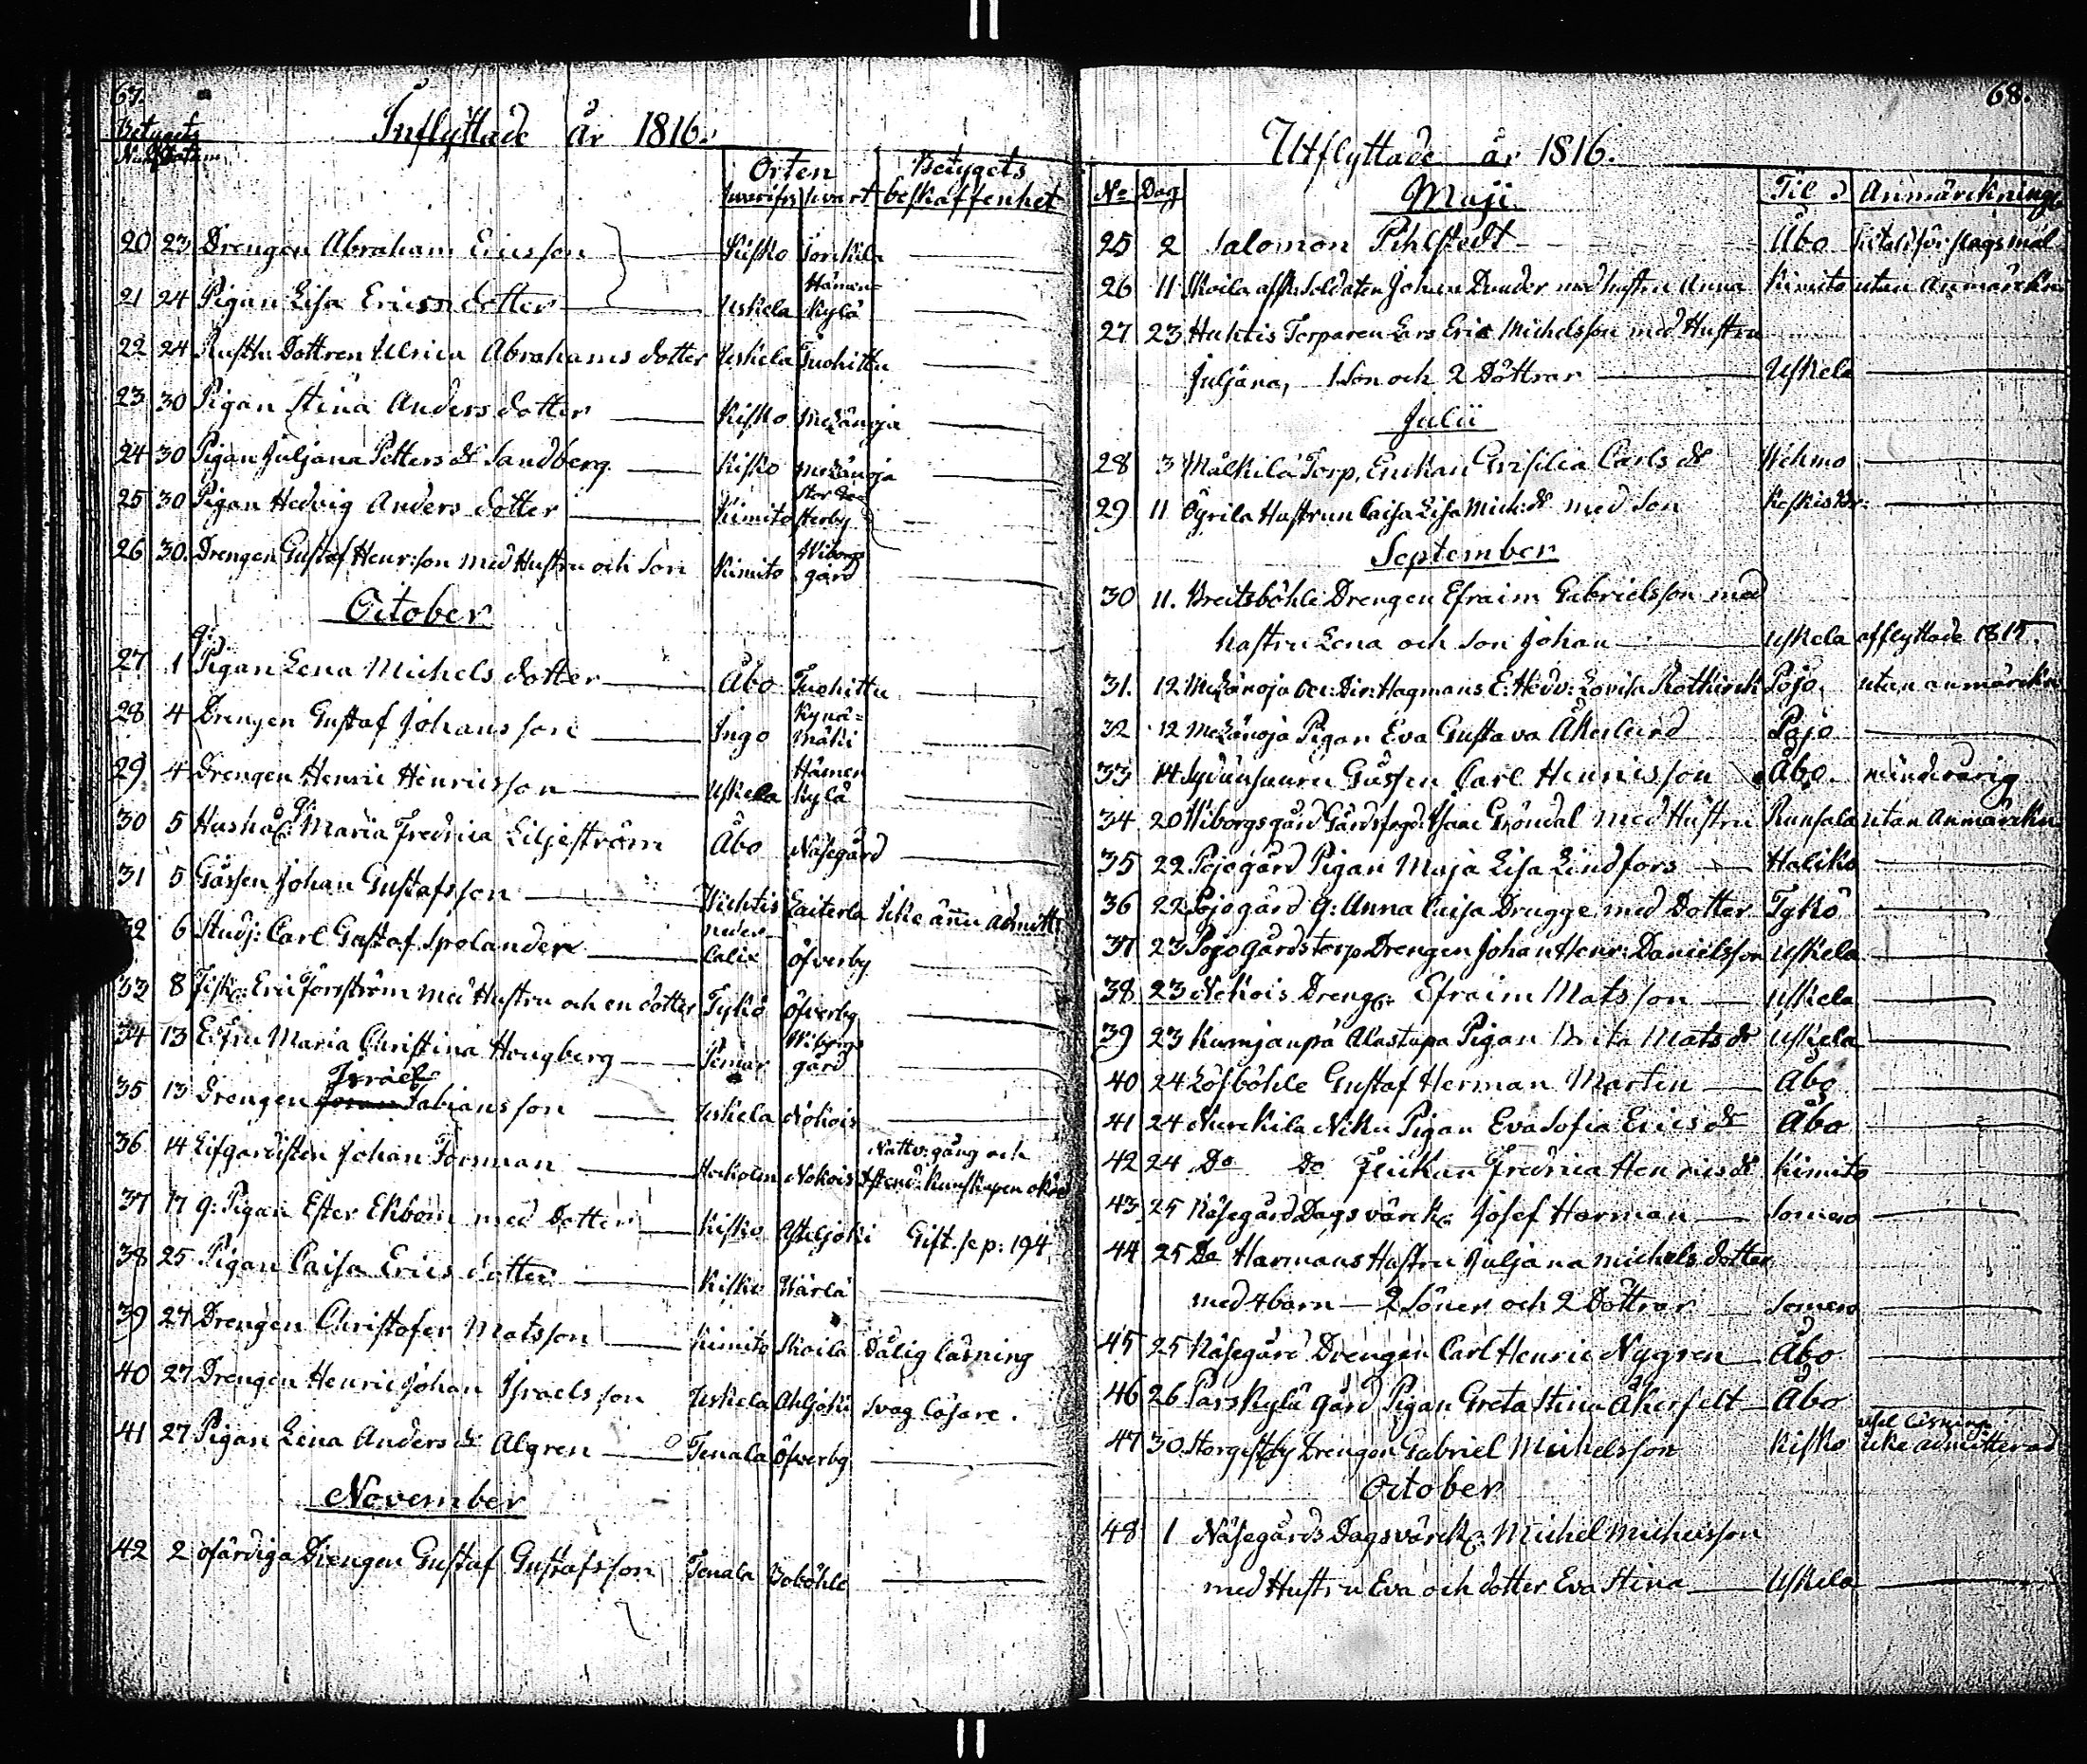 67.
Inflyttade år 1816.
Betygets
Num Datum
Orten Betygets
hvarifrån hvart beskaffenhet
20 23 Drengen Abraham Ericsson Kisko
21 24 Pigan Lisa Ericsdotter Uskela Hämen=kylä
22 24 Rusth: Dottren Ulrica Abrahams dotter Uskela Tuohittu
23 30 Pigan Stina Anders dotter Kisko
24 30 Pigan Juljana Petters dr Sandberg Kisko
25 30 Pigan Hedvig Anders dotter Kimito
26 30. Drengen Gustaf Henr:son med Hustru och Son Kimito Wiborgsgård
October
27 1 q: Pigan Lena Michels dotter Åbo Tuohittu
28 4 Drengen Gustaf Johansson Ingo Kynä=mäki
29 4 Drengen Henric Henricsson Uskela Hämenkylä
30 5 Hushåll: q: Maria Fredrica Liljeström Åbo Näsegård
31 5 Gåssen Johan Gustafsson Wichtis Laiterla Icke ännu admitt:
32 6 Studj: Carl Gustaf Spolander neder Calix Öfverby
33 8 Eric Forsström med Hustru och en dotter Tykö Öfverby
34 13 E:fru Maria Christina Hougberg Pemar Wiborgsgård
35 13 Drengen Israel Fabiansson Uskela Nokois
36 14 Lifgardisten Johan Forsman Nokois Nattv: gång och
37 17 q: Pigan Ester Ekbom med Dotter Kisko Gift. se p: 194
38 25 Pigan Caisa Erics dotter Kisko Kärlä
39 27 Drengen Christofer Matsson Kimito Skoila Dålig läsning
40 27 Drengen Henric Johan Israelsson Uskela Ahljoki Svag läsare.
41 27 Pigan Lena Anders dr Algren Tenala Öfverby
November
42 2 ofärdiga Drengen Gustaf Gustafsson Tenala
68.
Utflyttade år 1816.
No Dag Maji Til Anmärckningar
25 2 Salomon Pihlstedt Åbo
26 11 Skoila afsk: Soldaten Johan Dunder med hustru Anna Kimito utan Anmärckn
27 23 Huhtis Torparen Lars Eric Michelsson med Hustru
Juljana, 1 Son och 2 Döttrar Uskela
Julii
28 3 Målkilä Torp, Enckan Grisilia Carls dr Wehmo
29 11 Öyrila Hustrun Caisa Lisa Mich: dr med Son
September
30 11. Breitsböhle Drengen Efraim Gabrielsson med
hustru Lena och Son Johan Uskela afflyttade 1815.
31. 12 Hagmans E: Hedv: Lovisa Rothkirck Pojo utan anmärckn
32 12 Pigan Eva Gustava Åkerlund Pojo
33 14 Gåssen Carl Henricsson Åbo minderårig
34 20 Wiborgsgård Gårdsfogd: Isaac Gröndal med Hustru Runsala utan Anmärckn
35 22 Pojogård Pigan Maja Lisa Lindfors Haliko
36 22 Pojogård q: Anna Caisa Drugge med Dotter Tykö
37 23 Pojogårds torp Drengen Johan Henr: Danielsson Uskela
38 23 Nokois Dreng: Efraim Matsson Uskela
39 23 Kumjanpä Alastupa Pigan Brita Mats dr Uskela
40 24 Löfböhle Gustaf Herman Martin Åbo
41 24 Nurckila Niku Pigan Eva Sofia Erics dr Åbo
42 24 Do Do Flickan Fredrica Henrics dr Kimito
43 25 Näsegård Dagsvärck: Josef Harman Somero
44 25 Do Harmans Hustru Juljana Michels dotter
med 4 barn – 2 Söner och 2 Döttrar Somero
45 25 Näsegård Drengen Carl Henric Nygren Åbo
46 26 Parskylä Gård Pigan Greta Stina Åkerfelt Åbo
47 30 Drengen Gabriel Michelsson Kisko usel läsning icke admitterad
October
48 1 Näsegårds Dagsvärck: Michel Michelsson
med Hustru Eva och dotter Eva Stina Uskela